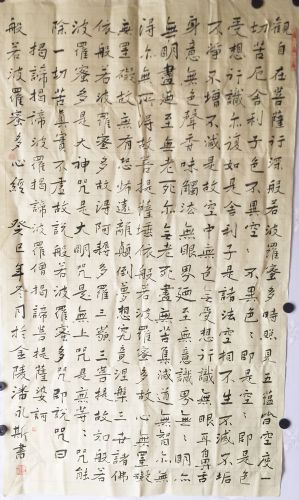 觀自在菩薩行深般若波羅蜜多時照見五蘊皆空度一
切苦厄舍利子色不異空〻不異色〻即是空〻即是色
受想行識亦復如是舍利子是諸法空相不生不滅不垢
不淨不增不減是故空中無色無受想行識無眼耳鼻舌
身意無色聲香味觸法無眼界廼至無意識界無〻明亦
無〻明盡廼至無老死亦無老死盡無苦集滅道無智亦無
得以無所得故菩提薩埵依般若波羅蜜多故心無罣礙
無罣礙故無有恐怖遠離顛倒夢想究竟涅槃三世諸佛
依般若波羅蜜多故得阿耨多羅三藐三菩提故知般若
波羅蜜多是大神咒是大明咒是無上咒是無等〻咒能
除一切苦真實不虛故說般若波羅蜜多咒即說咒曰
揭諦揭諦波羅揭諦波羅僧揭諦菩提薩婆訶
般若波羅蜜多心經 癸巳年冬月於金陵潘永斯書